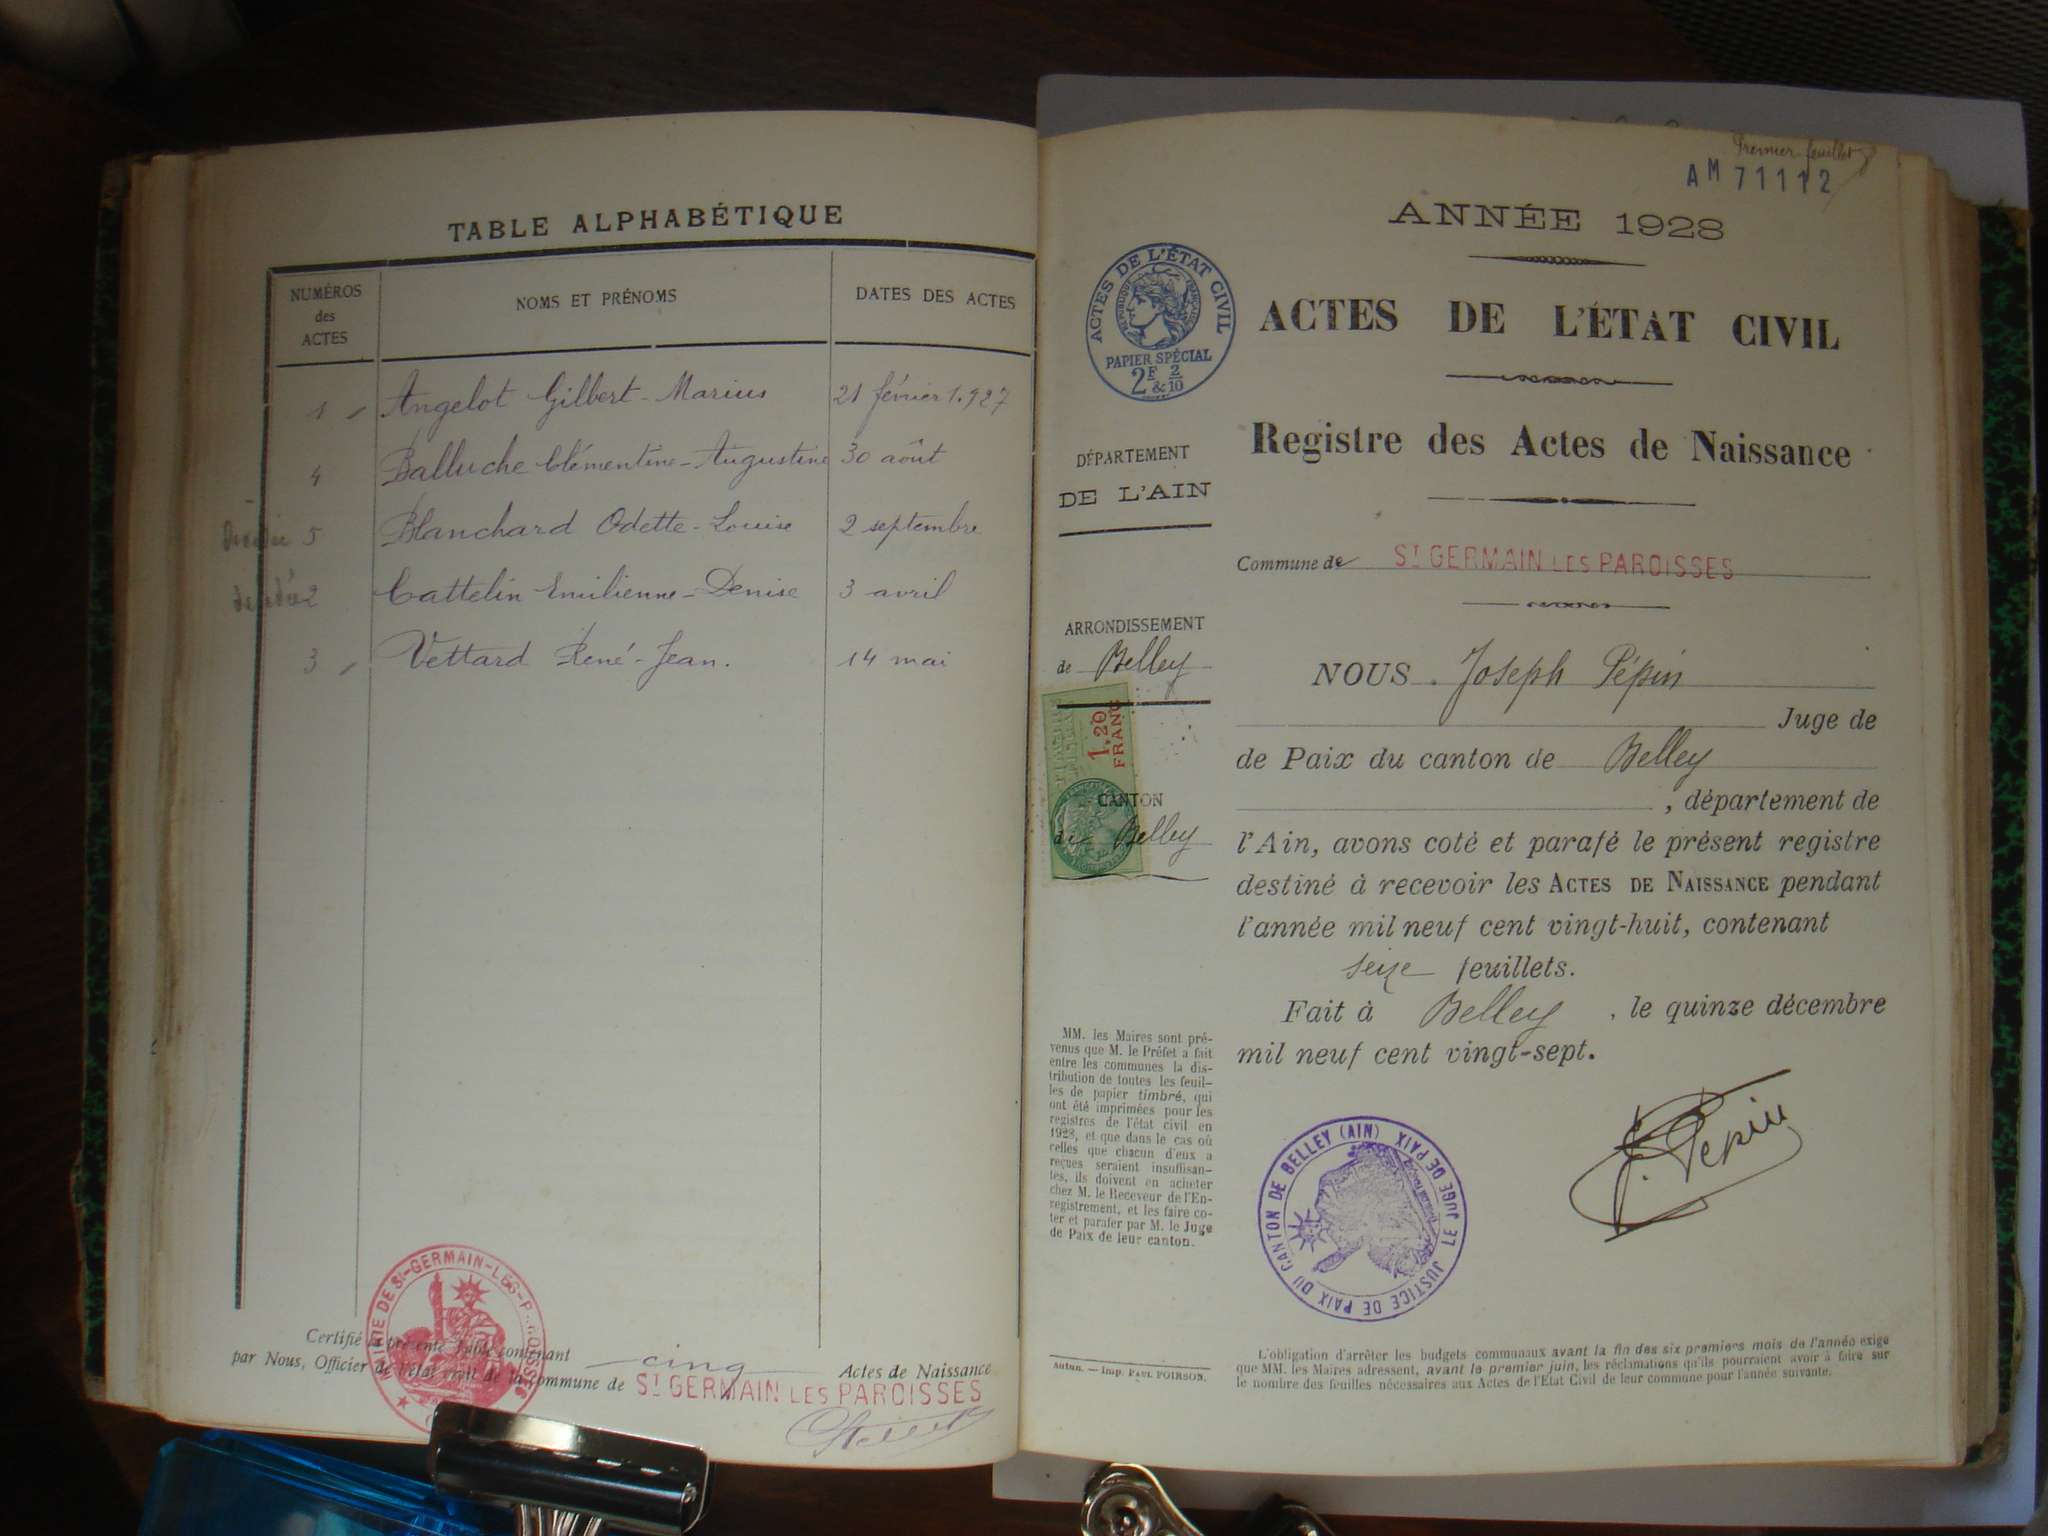 TABLE ALPHABÉTIQUE
NUMÉROS
des
ACTES
NOMS ET PRÉNOMS
DATES DES ACTES
1 Angelot Gilbert-Marius 21 février 1.927
4 Balluche Clémentine-Augustine 30 août
5 Blanchard Odette-Louise 2 septembre
2 Cattelin Emilienne-Denise 3 avril
3 Vettard René-Jean. 14 mai
MAIRIE DE ST-GERMAIN-LES-PAROISSES
Certifié la présente Table contenant cinq Actes de Naissance
par Nous, Officier de l'état civil de la commune de ST GERMAIN LES PAROISSES
Premier feuillet
AM 71112
ANNÉE 1928
ACTES DE L'ÉTAT CIVIL
RÉPUBLIQUE FRANÇAISE
PAPIER SPÉCIAL
2F 2/10
&
ACTES DE L'ÉTAT CIVIL
Registre des Actes de Naissance
DÉPARTEMENT
DE L'AIN
Commune de ST GERMAIN LES PAROISSES
ARRONDISSEMENT
de Belley
1,20
FRANC
CANTON
de Belley
NOUS Joseph Pépin
Juge de
de Paix du canton de Belley
, département de
l'Ain, avons coté et parafé le présent registre
destiné à recevoir les ACTES DE NAISSANCE pendant
l'année mil neuf cent vingt-huit, contenant
seize feuillets.
Fait à Belley, le quinze décembre
mil neuf cent vingt-sept.
J. Pépin
JUSTICE DE PAIX DU CANTON DE BELLEY (AIN)
LE JUGE DE PAIX
MM. les Maires sont pré-
venus que M. le Préfet a fait
entre les communes la dis-
tribution de toutes les feuil-
les de papier timbré, qui
ont été imprimées pour les
registres de l'état civil en
1928, et que dans le cas où
celles que chacun d'eux a
reçues seraient insuffisan-
tes, ils doivent en acheter
chez M. le Receveur de l'En-
registrement, et les faire co-
ter et parafer par M. le Juge
de Paix de leur canton.
Autun. — Imp. PAUL POIRSON.
L'obligation d'arrêter les budgets communaux avant la fin des six premiers mois de l'année exige
que MM. les Maires adressent, avant le premier juin, les réclamations qu'ils pourraient avoir à faire sur
le nombre des feuilles nécessaires aux Actes de l'Etat Civil de leur commune pour l'année suivante.